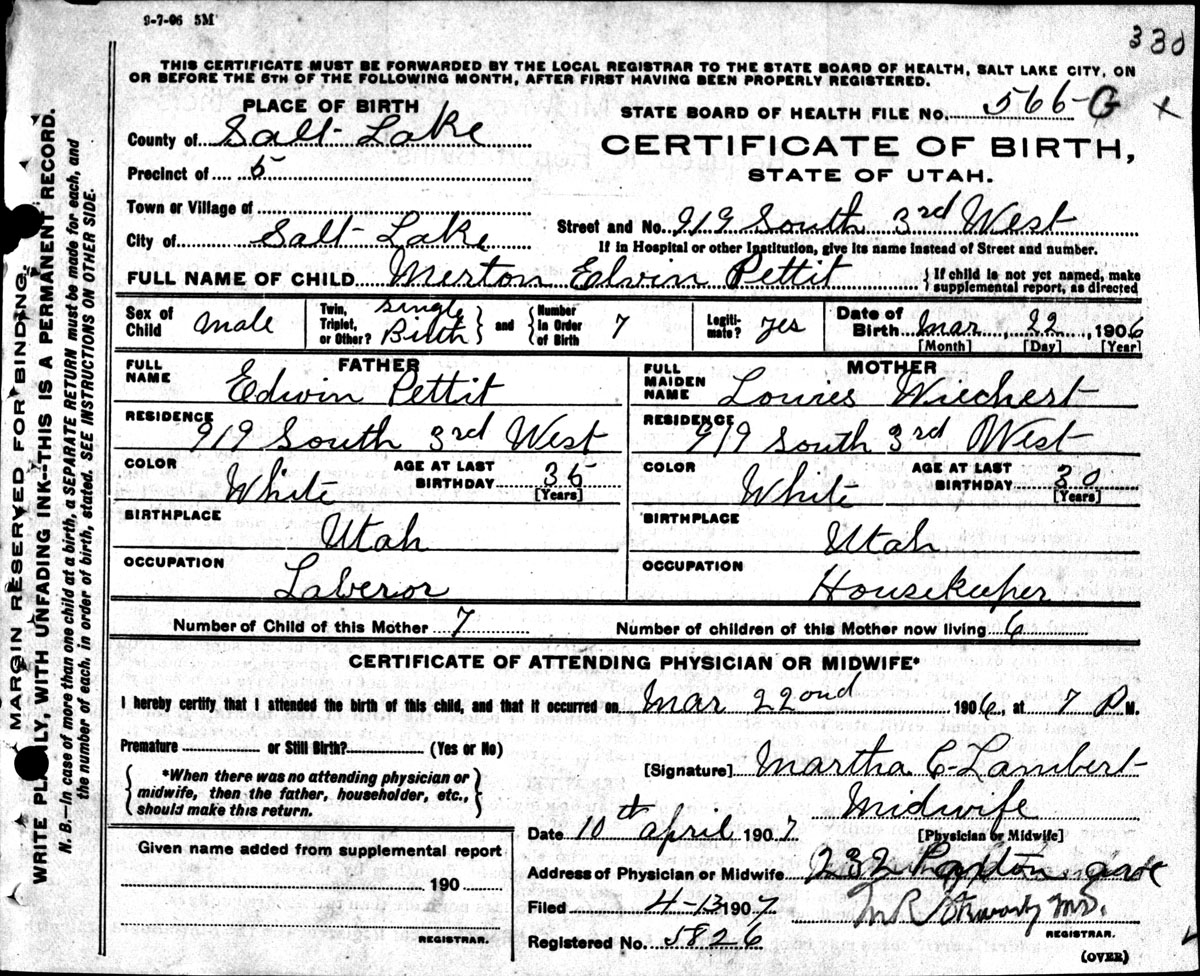 9-7-06 5M
330
THIS CERTIFICATE MUST BE FORWARDED BY THE LOCAL REGISTRAR TO THE STATE BOARD OF HEALTH, SALT LAKE CITY, ON
OR BEFORE THE 5TH OF THE FOLLOWING MONTH, AFTER FIRST HAVING BEEN PROPERLY REGISTERED.
PLACE OF BIRTH
STATE BOARD OF HEALTH FILE NO. 566-G x
County of Salt Lake
CERTIFICATE OF BIRTH,
Precinct of 5
STATE OF UTAH.
Town or Village of
Street and No. 919 South 3rd West
City of Salt Lake
If in Hospital or other Institution, give its name instead of Street and number.
FULL NAME OF CHILD Merton Edwin Pettit
If child is not yet named, make
supplemental report, as directed
Sex of Child male
Twin, Triplet, or Other? Single Birth and Number in Order of Birth 7
Legitimate? yes
Date of Birth Mar, 22, 1906
[Month] [Day] [Year]
FATHER
FULL NAME Edwin Pettit
RESIDENCE 919 South 3rd West
COLOR White AGE AT LAST BIRTHDAY 35
[Years]
BIRTHPLACE Utah
OCCUPATION Laberor
MOTHER
FULL MAIDEN NAME Louies Wiechert
RESIDENCE 919 South 3rd West
COLOR White AGE AT LAST BIRTHDAY 30
[Years]
BIRTHPLACE Utah
OCCUPATION Housekeeper
Number of Child of this Mother 7 Number of children of this Mother now living 6
CERTIFICATE OF ATTENDING PHYSICIAN OR MIDWIFE*
I hereby certify that I attended the birth of this child, and that it occurred on Mar 22ond 1906, at 7 P M.
Premature or Still Birth? (Yes or No)
*When there was no attending physician or
midwife, then the father, householder, etc.,
should make this return.
[Signature] Martha C. Lambert
Midwife
[Physician or Midwife]
Date 10th april 1907
Given name added from supplemental report
190
REGISTRAR.
Address of Physician or Midwife 232 ave
Filed 4-13 1907 M.D.
REGISTRAR.
Registered No. 5826
(OVER)
MARGIN RESERVED FOR BINDING.
WRITE PLAINLY, WITH UNFADING INK--THIS IS A PERMANENT RECORD.
N. B.—In case of more than one child at a birth, a SEPARATE RETURN must be made for each, and
the number of each, in order of birth, stated. SEE INSTRUCTIONS ON OTHER SIDE.